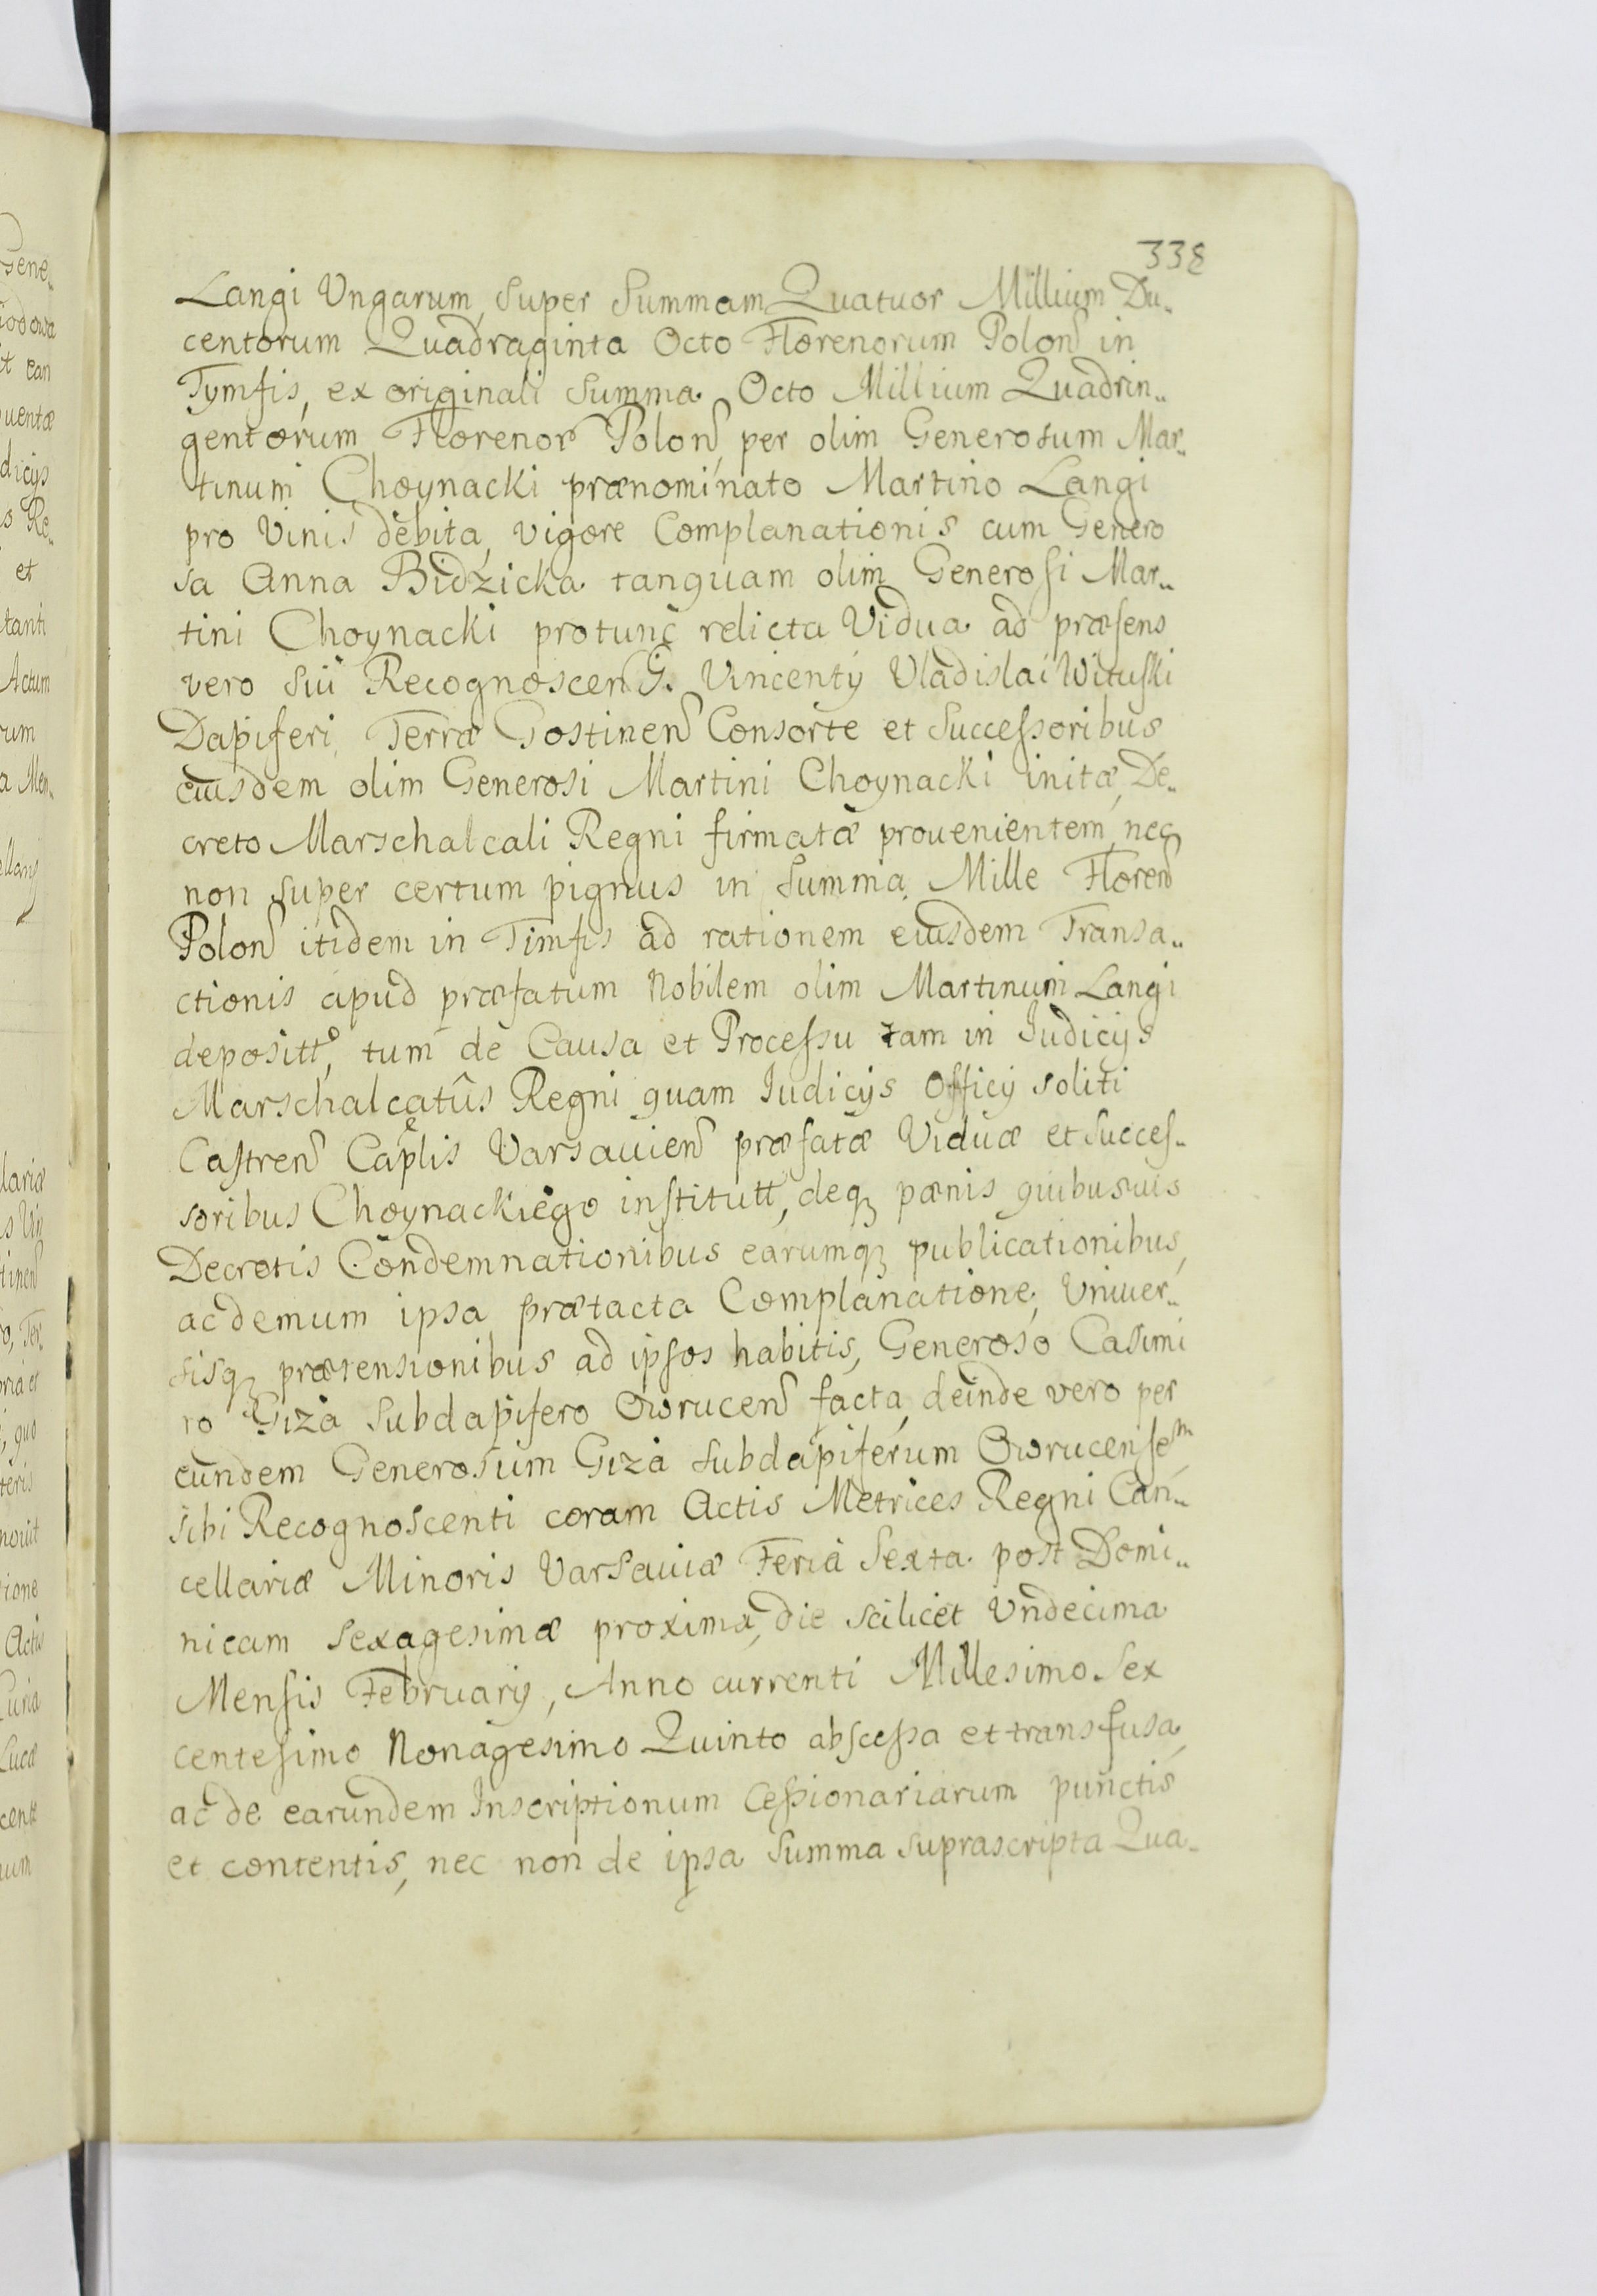 338
Langi Ungarum, super Summam Quatuor Millium Du„
centorum Quadraginta Octo Florenorum Polon in
Tymfis, ex originali Summa Octo Millium Quadrin„
gentorum Florenor Polon, per olim Generosum Mar„
tinum Choynacki prænominato Martino Langi
pro Vinis debita, vigore Complanationis cum Genero
sa Anna Bidzicka tanquam olim Generosi Mar„
tini Choynacki protunc relicta Vidua ad præsens
vero sui Recognoscen G. Vincentÿ Vladislai Wituski
Dapiferi Terræ Gostinen Consorte et Successoribus
eiusdem olim Generosi Martini Choynacki initæ, De„
creto Marschalcali Regni firmatæ provenientem, nec
non super certum pignus in Summa Mille Floren
Polon itidem in Timfis ad rationem eiusdem Transa„
ctionis apud præfatum Nobilem olim Martinum Langi
depositt°, tum de Causa et Processu tam in Iudicÿs
Marschalcatûs Regni quam Iudicÿs Officÿ soliti
Castren Caplis Varsavien præfatæ Viduæ et Succes„
soribus Choynackiego institutt, deq; pænis quibusvis
Decretis Condemnationibus earumq; publicationibus,
ac demum ipsa prætacta Complanatione, Univer„
sisq; prætensionibus ad ipsos habitis, Generoso Casimi
ro Giza Subdapifero Owrucen facta, deinde vero per
eundem Generosum Giza Subdapiferum Owrucensem
sibi Recognoscenti coram Actis Metrices Regni Can„
cellariæ Minoris Varsaviæ Feria Sexta post Domi„
nicam Sexagesimæ proxima, die scilicet Undecima
Mensis Februarÿ, Anno currenti Millesimo Sex
centesimo Nonagesimo Quinto abscessa et transfusa,
ac de earundem Inscriptionum Cessionariarum punctis
et contentis, nec non de ipsa Summa suprascripta Qua„